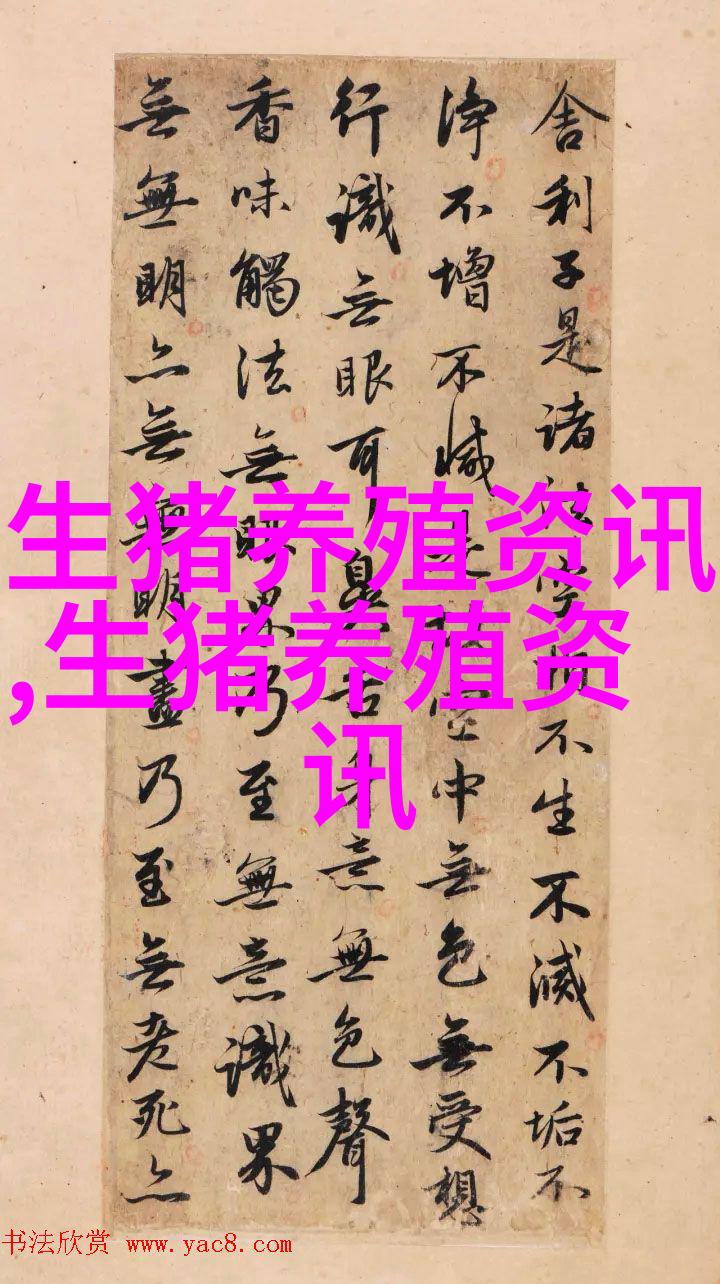 舍利子是諸法空相不生不滅不垢不
淨不增不減是故空中無色無受想
行識無眼耳鼻舌身意無色聲
香味觸法無眼界乃至無意識界
無無明亦無無明盡乃至無老死亦
生猪养殖资讯
,生猪养殖资
讯
书法欣赏 www.yac8.com